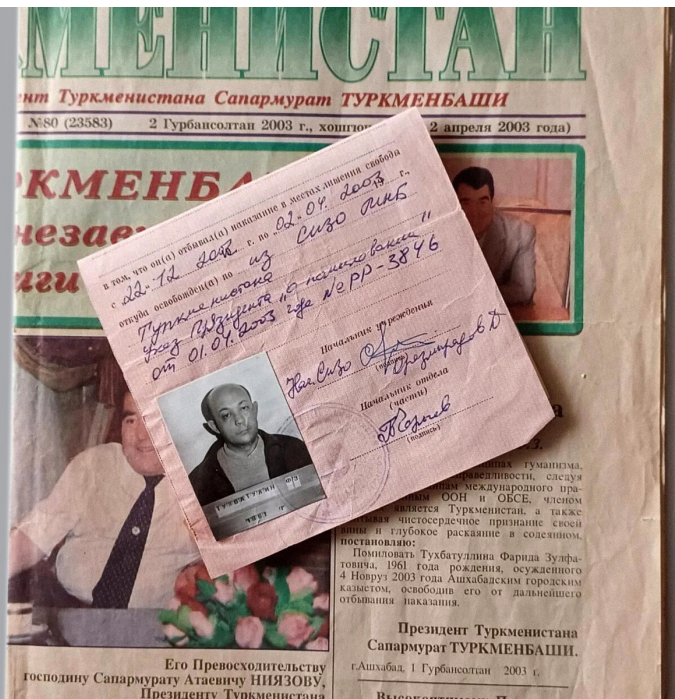 МЕНИСТАН
ент Туркменистана Сапармурат ТУРКМЕНБАШИ
№80 (23583) 2 Гурбансолтан 2003 г., 2 апреля 2003 года)
РКМЕНБА
незав
иги
в том, что он(а) отбывал(а) наказание в местах лишения свобода
с 22-12 г. по 02.04.2003 г.,
откуда освобожден(а) по из СИЗО МНБ
Туркменистана
указ Президента "о помиловании"
от 01.04.2003 года № РР-3846
Начальник учреждения
Нач. Сизо
(подпись)
Начальник отдела
(части)
(подпись)
ТУХБАТУЛИН ФЗ
1961 г
ипах гуманизма,
раведливости, следуя
пам международного пра-
ым ООН и ОБСЕ, членом
является Туркменистан, а также
тывая чистосердечное признание своей
вины и глубокое раскаяние в содеянном,
постановляю:
Помиловать Тухбатуллина Фарида Зулфа-
товича, 1961 года рождения, осужденного
4 Новруз 2003 года Ашхабадским городским
казыетом, освободив его от дальнейшего
отбывания наказания.
Президент Туркменистана
Сапармурат ТУРКМЕНБАШИ.
г.Ашхабад, 1 Гурбансолтан 2003 г.
Его Превосходительству
господину Сапармурату Атаевичу НИЯЗОВУ,
Президенту Туркменистана